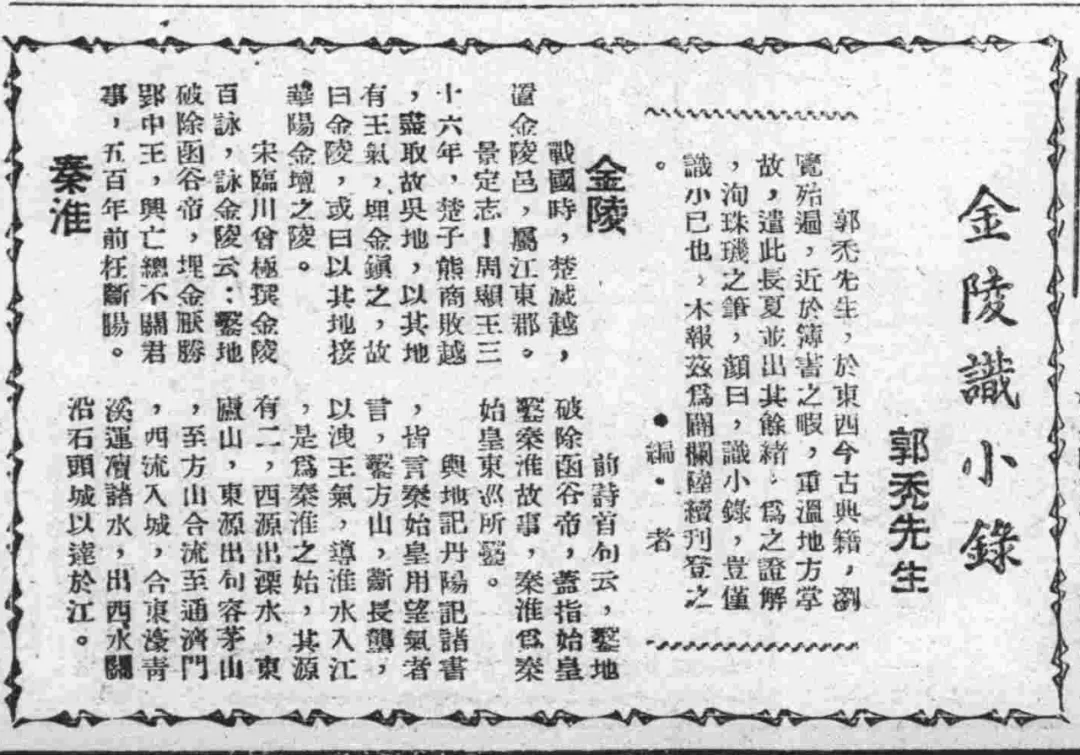 金陵識小錄
郭禿先生
郭禿先生，於東西今古典籍，瀏
覽殆遍，近於簿書之暇，重溫地方掌
故，遣此長夏並出其餘緒，為之證解
，洵珠璣之筆，顏曰，識小錄，豈僅
識小已也，本報茲爲闢欄陸續刊登之
。
●編・者
金陵
戰國時，楚滅越，
置金陵邑，屬江東郡。
景定志！周顯王三
十六年，楚子熊商敗越
，盡取故吳地，以其地
有王氣，埋金鎮之，故
曰金陵，或曰以其地接
華陽金壇之陵。
宋臨川曾極撰金陵
百詠，詠金陵云：鑿地
破除函谷帝，埋金厭勝
郢中王，興亡總不關君
事，五百年前枉斷腸。
秦淮
前詩首句云，鑿地
破除函谷帝，蓋指始皇
鑿秦淮故事，秦淮爲秦
始皇東巡所鑿。
輿地記丹陽記諸書
，皆言秦始皇用望氣者
言，鑿方山，斷長壟，
以洩王氣，導淮水入江
，是爲秦淮之始，其源
有二，西源出溧水，東
廬山，東源出句容茅山
，至方山合流至通濟門
，西流入城，合東濠青
溪運瀆諸水，出西水關
沿石頭城以達於江。